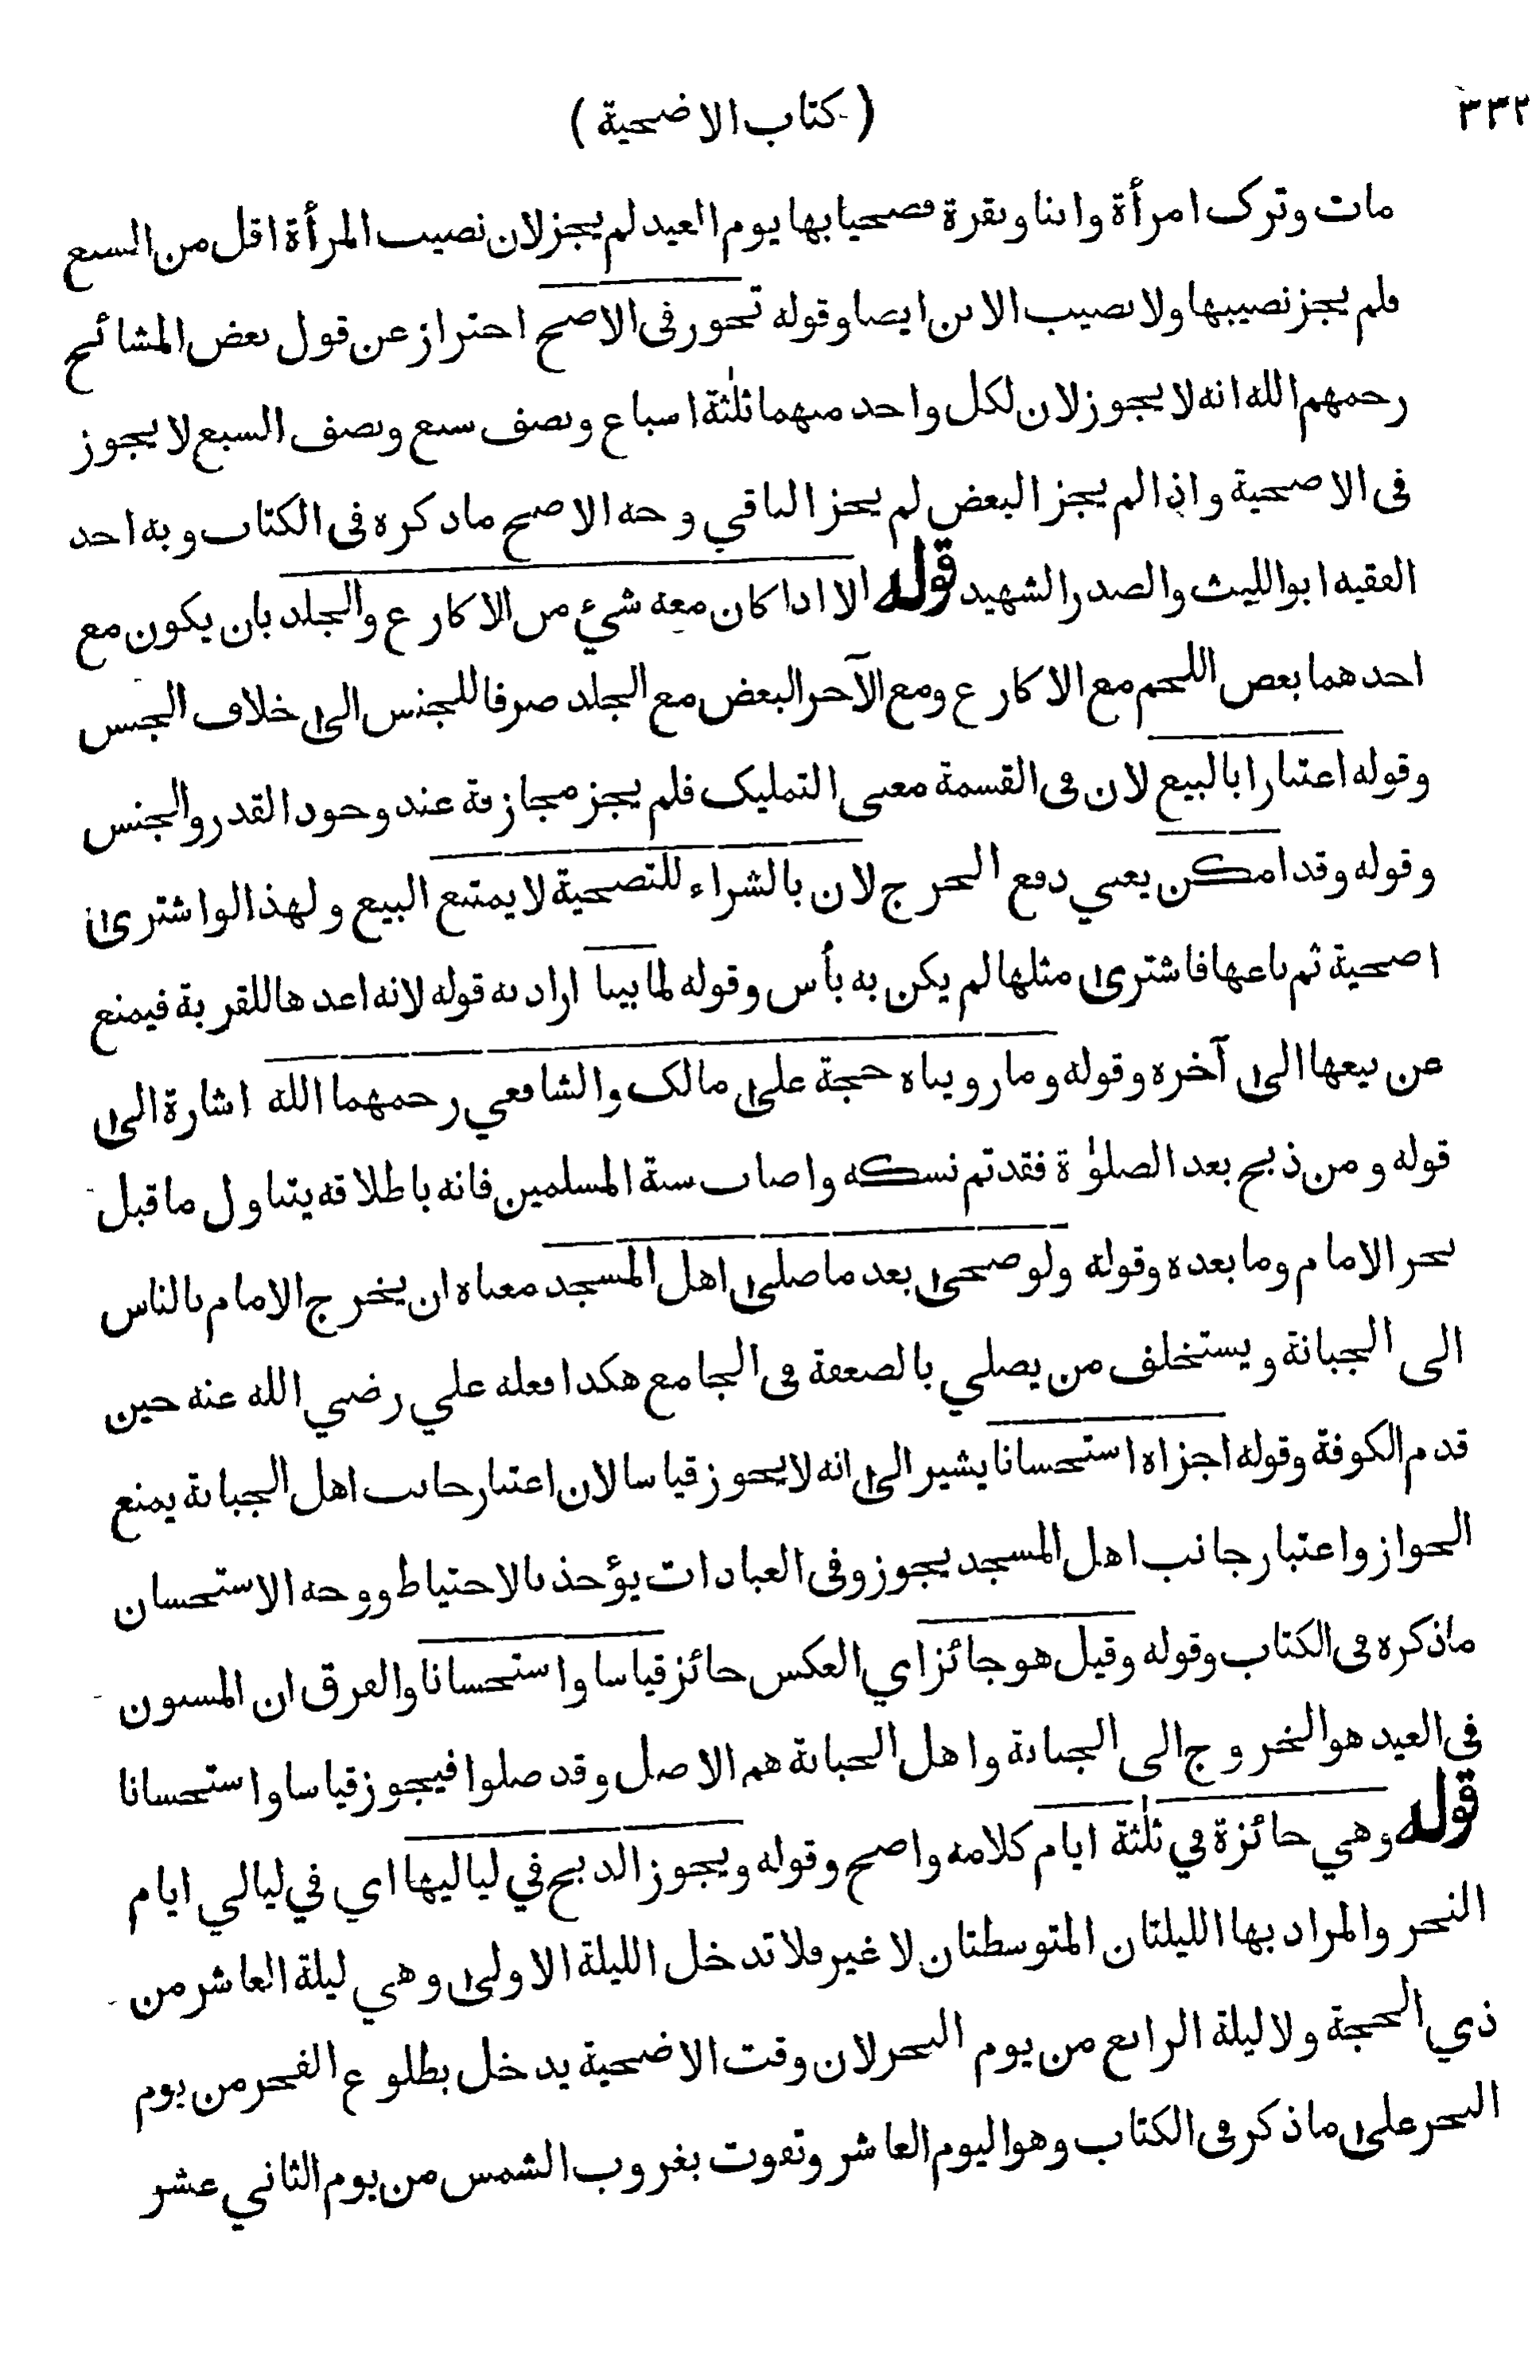 ٣٣٢
( كتاب الاضحية )
مات وترك امرأة وابنا وبقرة فضحيا بها يوم العيد لم يجز لان نصيب المرأة اقل من السبع
فلم يجز نصيبها ولا نصيب الابن ايضا وقوله تجوز فى الاصح احتراز عن قول بعض المشائخ
رحمهم الله انه لا يجوز لان لكل واحد منهما ثلٰثة اسباع ونصف سبع ونصف السبع لا يجوز
فى الاضحية واذا لم يجز البعض لم يجز الباقي وجه الاصح ما ذكره فى الكتاب وبه اخذ
الفقيه ابو الليث والصدر الشهيد قوله الا اذا كان معه شيئ من الاكارع والجلد بان يكون مع
احدهما بعض اللحم مع الاكارع ومع الآخر البعض مع الجلد صرفا للجنس الى خلاف الجنس
وقوله اعتبارا بالبيع لان فى القسمة معنى التمليك فلم يجز مجازفة عند وجود القدر والجنس
وقوله وقد امكن يعني دفع الحرج لان بالشراء للتضحية لا يمتنع البيع ولهذا لو اشترى
اضحية ثم باعها فاشترى مثلها لم يكن به بأس وقوله لما بينا اراد به قوله لانه اعدها للقربة فيمنع
عن بيعها الى آخره وقوله وما رويناه حجة على مالك والشافعي رحمهما الله اشارة الى
قوله ومن ذبح بعد الصلوٰة فقد تم نسكه واصاب سنة المسلمين فانه باطلاقه يتناول ما قبل
نحر الامام وما بعده وقوله ولو ضحى بعد ما صلى اهل المسجد معناه ان يخرج الامام بالناس
الى الجبانة ويستخلف من يصلي بالضعفة فى الجامع هكذا فعله علي رضي الله عنه حين
قدم الكوفة وقوله اجزاه استحسانا يشير الى انه لا يجوز قياسا لان اعتبار جانب اهل الجبانة يمنع
الجواز واعتبار جانب اهل المسجد يجوز وفى العبادات يؤخذ بالاحتياط ووجه الاستحسان
ما ذكره فى الكتاب وقوله وقيل هو جائز اي العكس جائز قياسا واستحسانا والفرق ان المسنون
فى العيد هو الخروج الى الجبانة واهل الجبانة هم الاصل وقد صلوا فيجوز قياسا واستحسانا
قوله وهي جائزة في ثلٰثة ايام كلامه واضح وقوله ويجوز الذبح في لياليها اي في ليالي ايام
النحر والمراد بها الليلتان المتوسطتان لا غير فلا تدخل الليلة الاولى وهي ليلة العاشر من
ذي الحجة ولا ليلة الرابع من يوم النحر لان وقت الاضحية يدخل بطلوع الفجر من يوم
النحر على ما ذكر فى الكتاب وهو اليوم العاشر وتفوت بغروب الشمس من يوم الثاني عشر